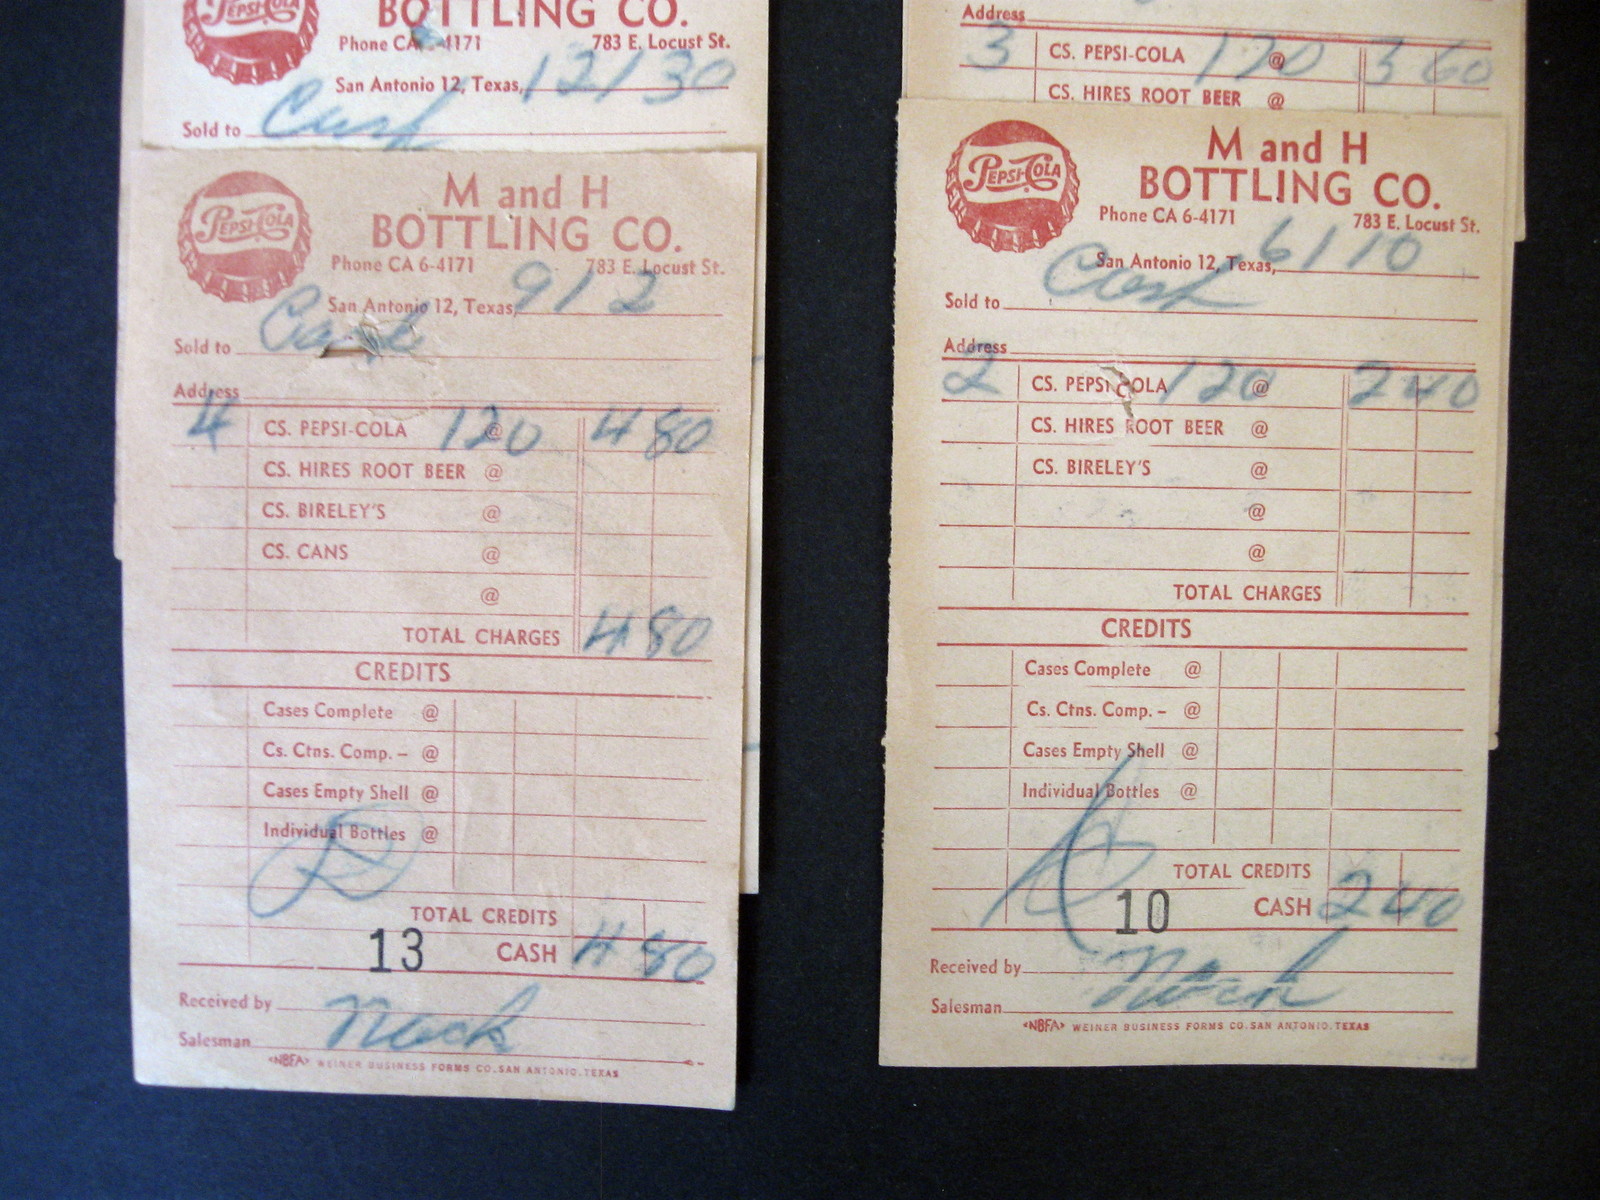 PEPSI-COLA
BOTTLING CO.
Phone CA 6-4171 783 E. Locust St.
San Antonio 12, Texas, 12/30
Sold to Cash
PEPSI-COLA
M and H
BOTTLING CO.
Phone CA 6-4171 783 E. Locust St.
San Antonio 12, Texas, 9/2
Sold to Cash
Address
4 CS. PEPSI-COLA 120 @ 4 80
CS. HIRES ROOT BEER @
CS. BIRELEY'S @
CS. CANS @
@
TOTAL CHARGES 4 80
CREDITS
Cases Complete @
Cs. Ctns. Comp. – @
Cases Empty Shell @
Individual Bottles @
TOTAL CREDITS
13 CASH 4 80
Received by
Salesman Nack
<NBFA> WEINER BUSINESS FORMS CO. SAN ANTONIO, TEXAS
Address
3 CS. PEPSI-COLA 120 @ 3 60
CS. HIRES ROOT BEER @
PEPSI-COLA
M and H
BOTTLING CO.
Phone CA 6-4171 783 E. Locust St.
San Antonio 12, Texas, 6/10
Sold to Cash
Address
2 CS. PEPSI-COLA 120 @ 2 40
CS. HIRES ROOT BEER @
CS. BIRELEY'S @
@
@
TOTAL CHARGES
CREDITS
Cases Complete @
Cs. Ctns. Comp. – @
Cases Empty Shell @
Individual Bottles @
TOTAL CREDITS
10 CASH 2 40
Received by
Salesman
<NBFA> WEINER BUSINESS FORMS CO. SAN ANTONIO, TEXAS